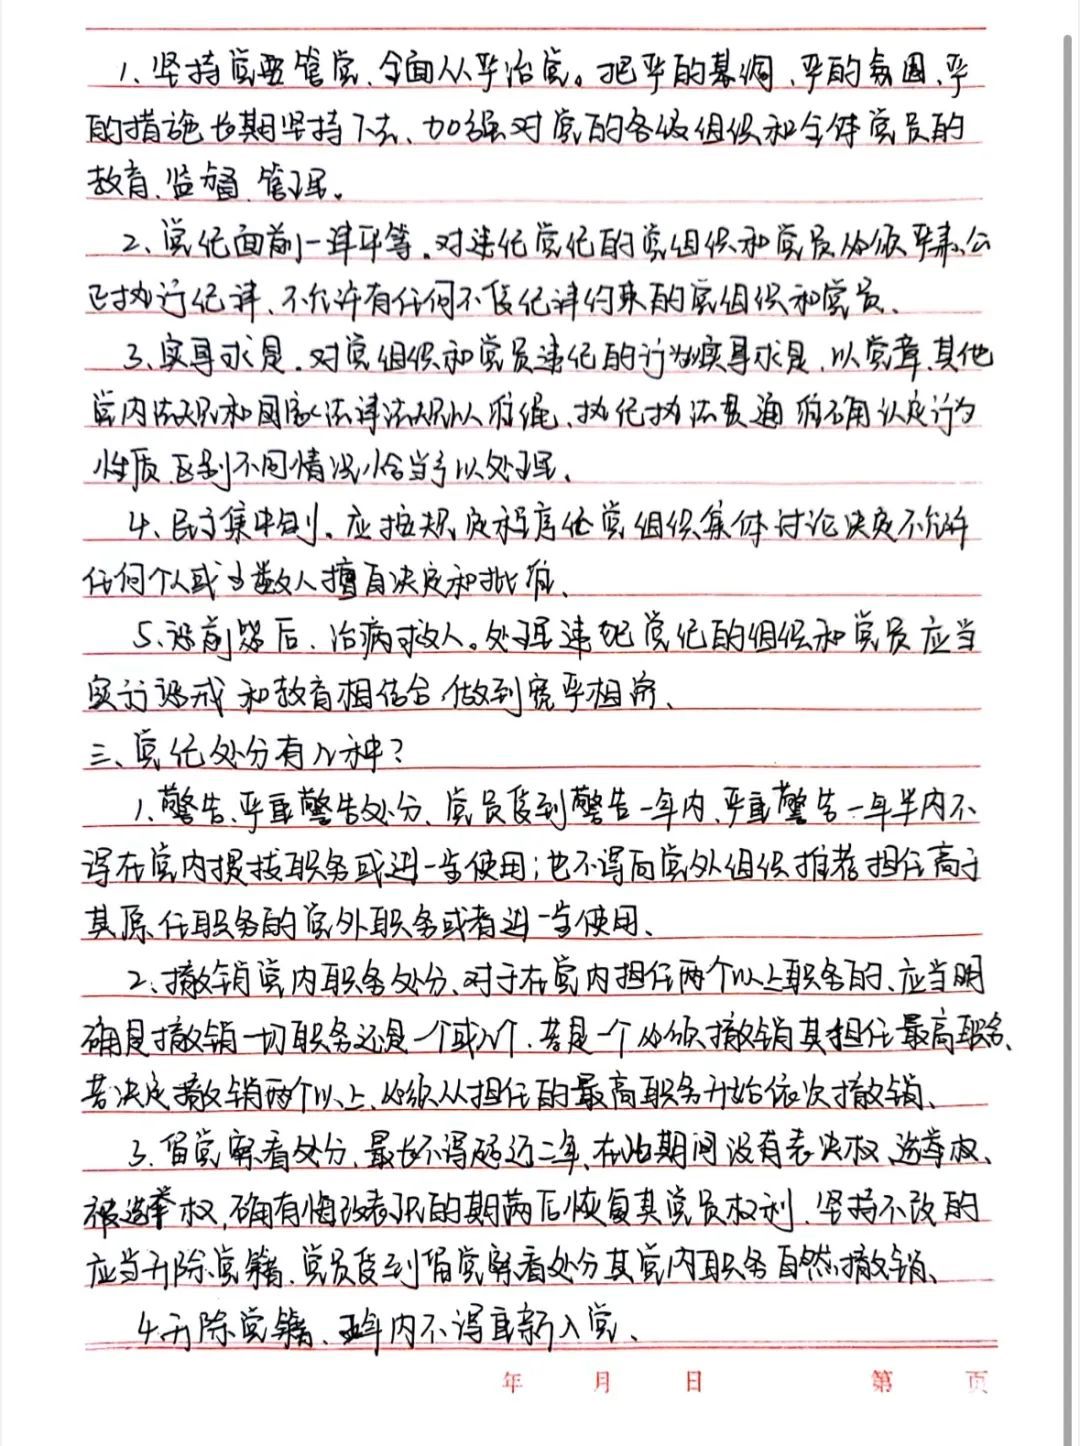 1、坚持党要管党、全面从严治党。把严的基调、严的氛围、严
的措施长期坚持下去、加强对党的各级组织和全体党员的
教育、监督、管理。
2、党纪面前一律平等。对违纪党纪的党组织和党员必须严肃、公
正执行纪律、不允许有任何不受纪律约束的党组织和党员、
3、实事求是。对党组织和党员违纪的行为实事求是、以党章、其他
党内法规和国家法律法规以准绳、执纪执法贯通准确认定行为
性质、区别不同情况恰当予以处理、
4、民主集中制。应按规定程序经党组织集体讨论决定不允许
任何个人或少数人擅自决定和批准、
5、惩前毖后、治病救人。处理违犯党纪的组织和党员应当
实行惩戒和教育相结合做到宽严相济、
三、党纪处分有几种？
1、警告、严重警告处分、党员受到警告一年内、严重警告一年半内不
得在党内提拔职务或进一步使用；也不得向党外组织推荐担任高于
其原任职务的党外职务或者进一步使用、
2、撤销党内职务处分、对于在党内担任两个以上职务的、应当明
确是撤销一切职务还是一个或几个、若是一个必须撤销其担任最高职务、
若决定撤销两个以上、必须从担任的最高职务开始依次撤销、
3、留党察看处分、最长不得超过二年、在此期间没有表决权、选举权、
被选举权、确有悔改表现的期满后恢复其党员权利、坚持不改的
应当开除党籍、党员受到留党察看处分其党内职务自然撤销、
4、开除党籍、五年内不得重新入党、
年 月 日 第 页